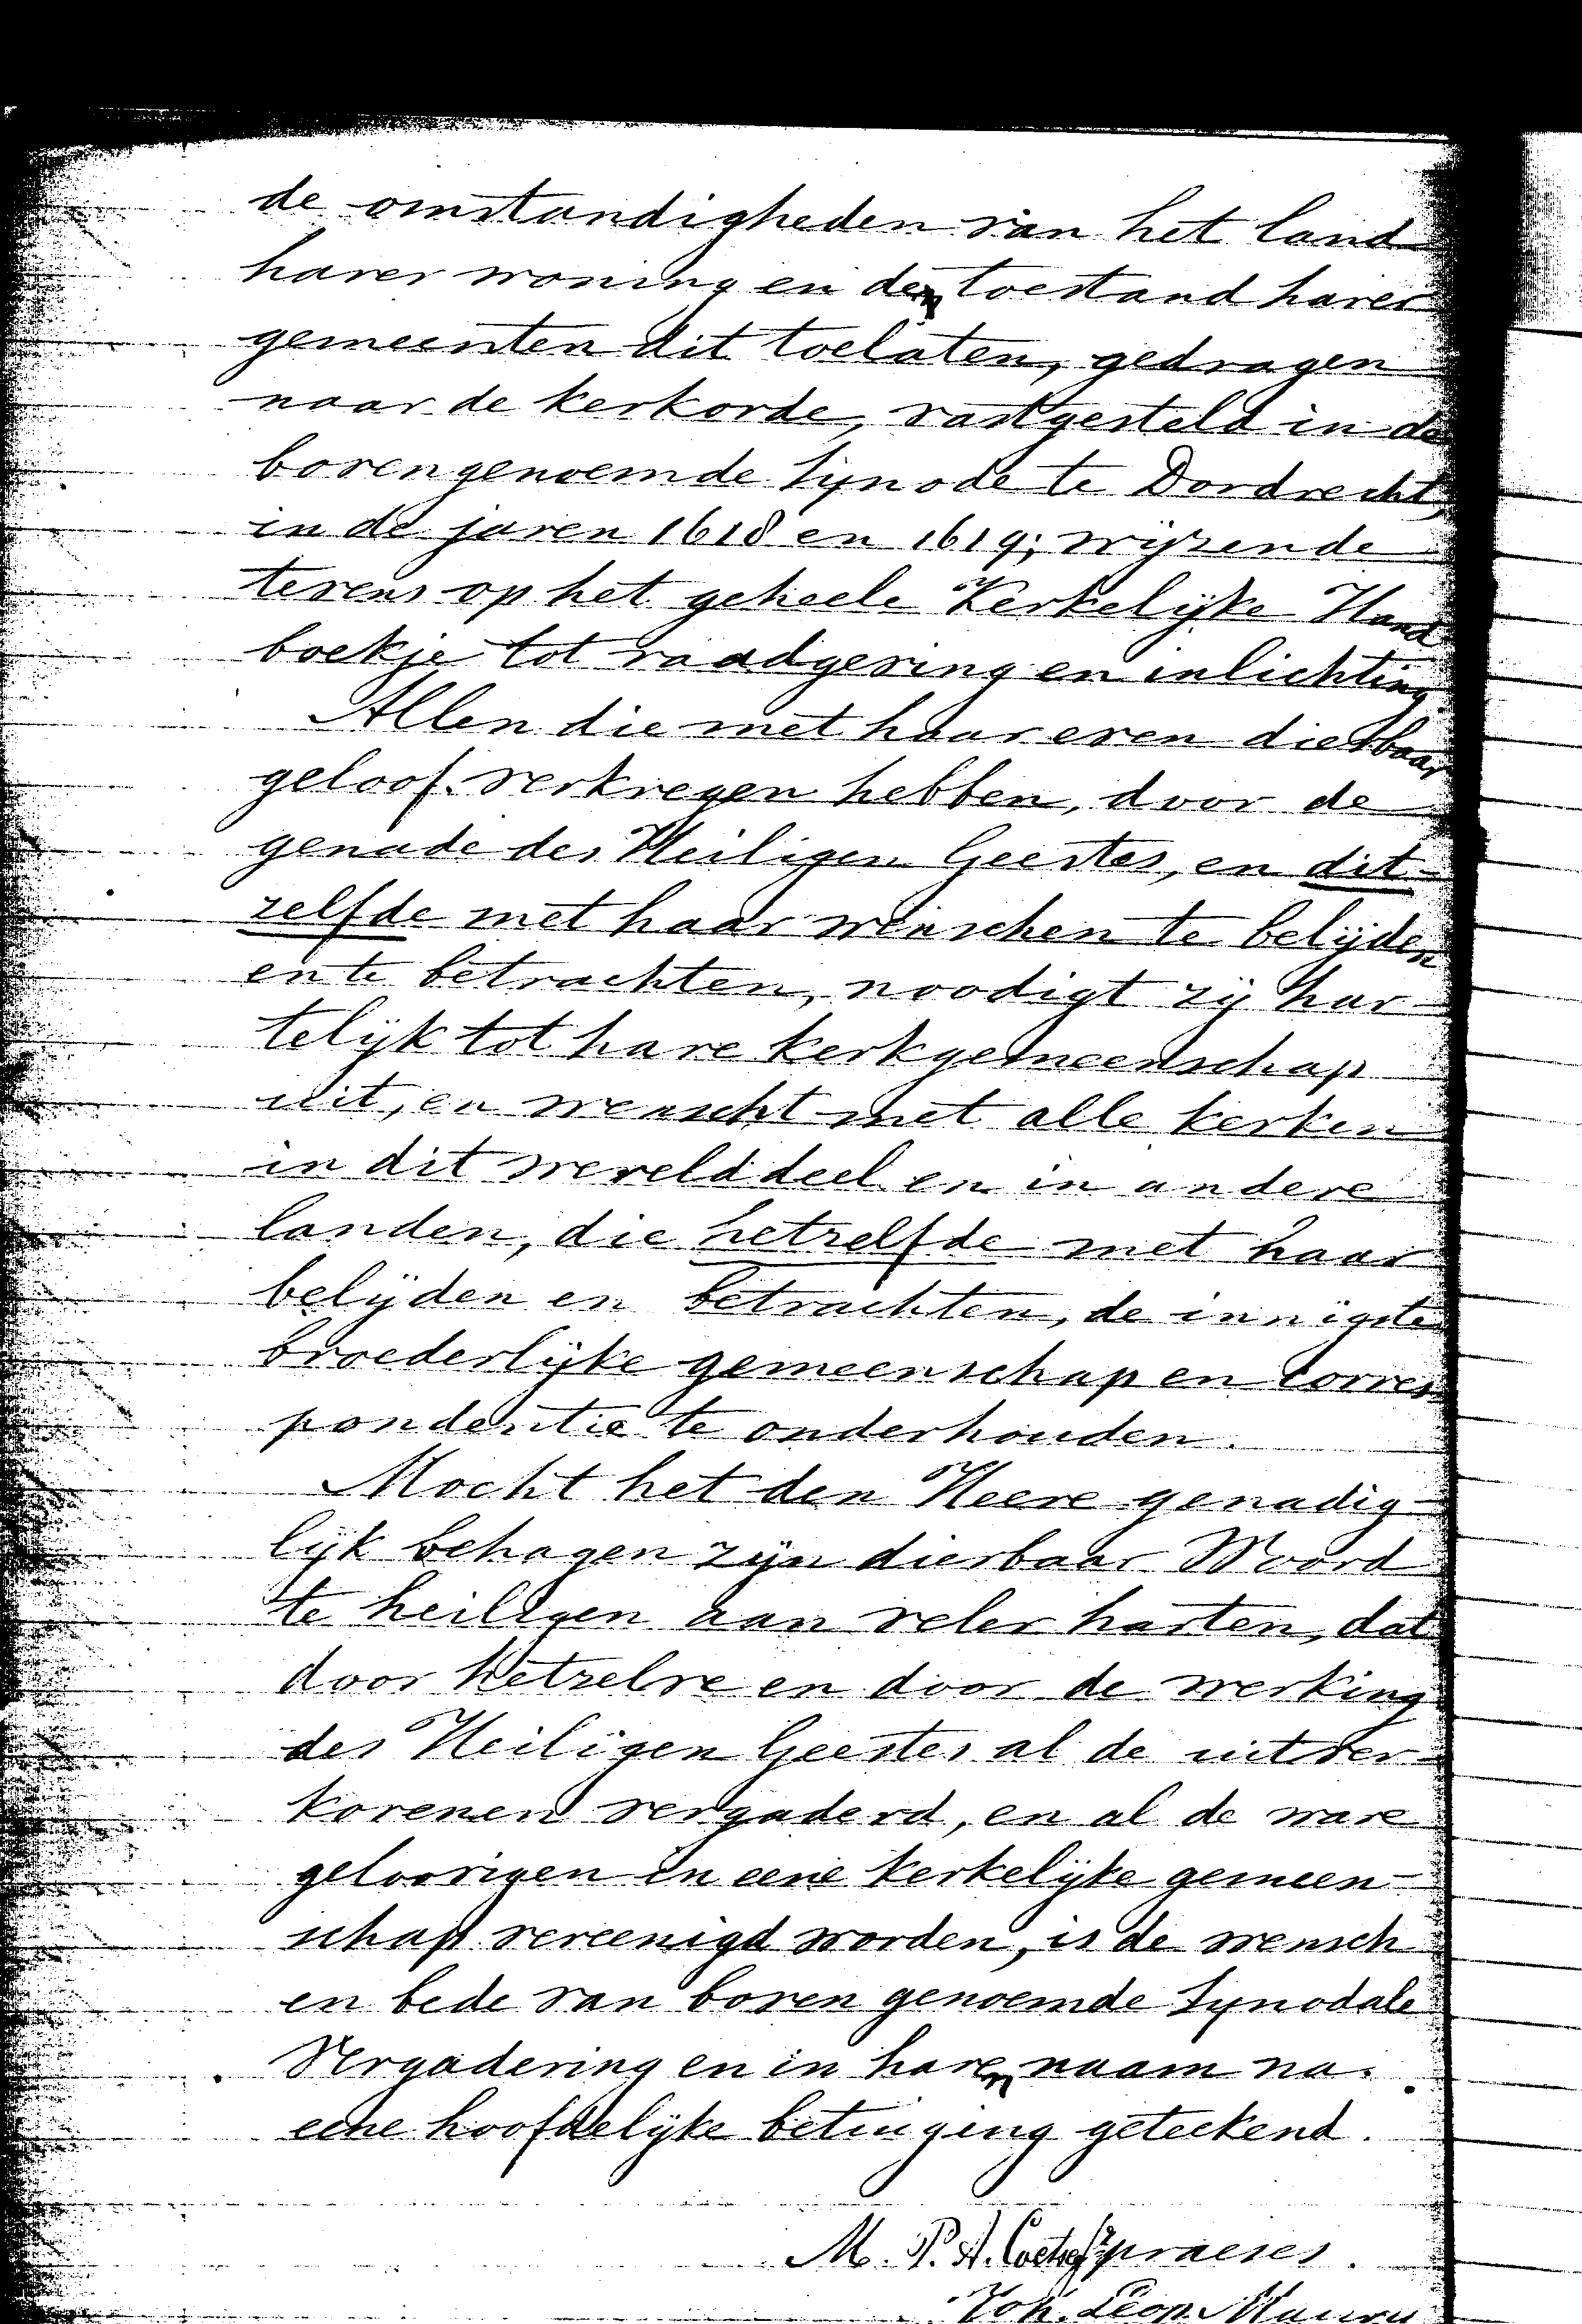 de omstandigheden van het land
harer woning en den toestand harer
gemeenten dit toelaten, gedragen
naar de kerkorde, vastgesteld in de
bovengenoemde Synode te Dordrecht,
in de jaren 1618 en 1619; wijzende
tevens op het geheele Kerkelijke Hand
boekje tot raadgeving en inlichting.
Allen die met haar even dierbaar
geloof verkregen hebben, door de
genade des Heiligen Geestes, en dit-
zelfde met haar wenschen te belijden
en te betrachten, noodigt zij har-
telijk tot hare kerkgemeenschap
uit, en wenscht met alle kerken
in dit werelddeel en in andere
landen, die hetzelfde met haar
belijden en betrachten, de innigste
broederlijke gemeenschap en corres
pondentie te onderhouden.
Mocht het den Heere genadig-
lijk behagen zijn dierbaar Woord
te heiligen aan veler harten, dat
door hetzelve en door de werking
des Heiligen Geestes al de uitver-
korenen vergaderd, en al de ware
geloovigen in eene kerkelijke gemeen-
schap vereenigd worden, is de wensch
en bede van boven genoemde Synodale
Vergadering en in haren naam na
eene hoofdelijke betuiging geteekend.
M. P. A. Coetzee praeses.
Joh. Leop. Maury